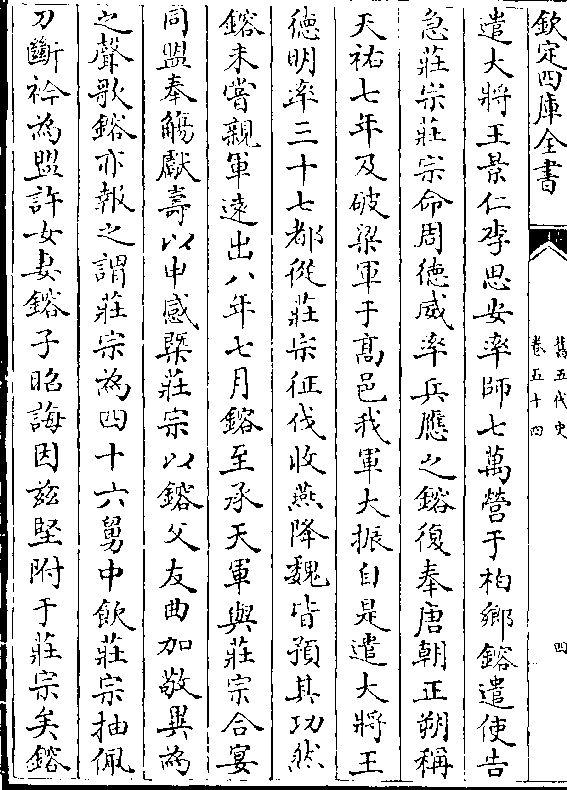 欽定四庫全書
舊五代史
卷五十四
四
遣大將王景仁李思安率師七萬營于柏鄉鎔遣使告
急莊宗莊宗命周德威率兵應之鎔復奉唐朝正朔稱
天祐七年及破梁軍于髙邑我軍大振自是遣大將王
德明率三十七都從莊宗征伐收燕降魏皆預其功然
鎔未嘗親軍逺出八年七月鎔至承天軍與莊宗合宴
同盟奉觴獻壽以申感槩莊宗以鎔父友曲加敬異為
之聲歌鎔亦報之謂莊宗為四十六舅中飲莊宗抽佩
刀斷衿為盟許女妻鎔子昭誨因兹堅附于莊宗矣鎔